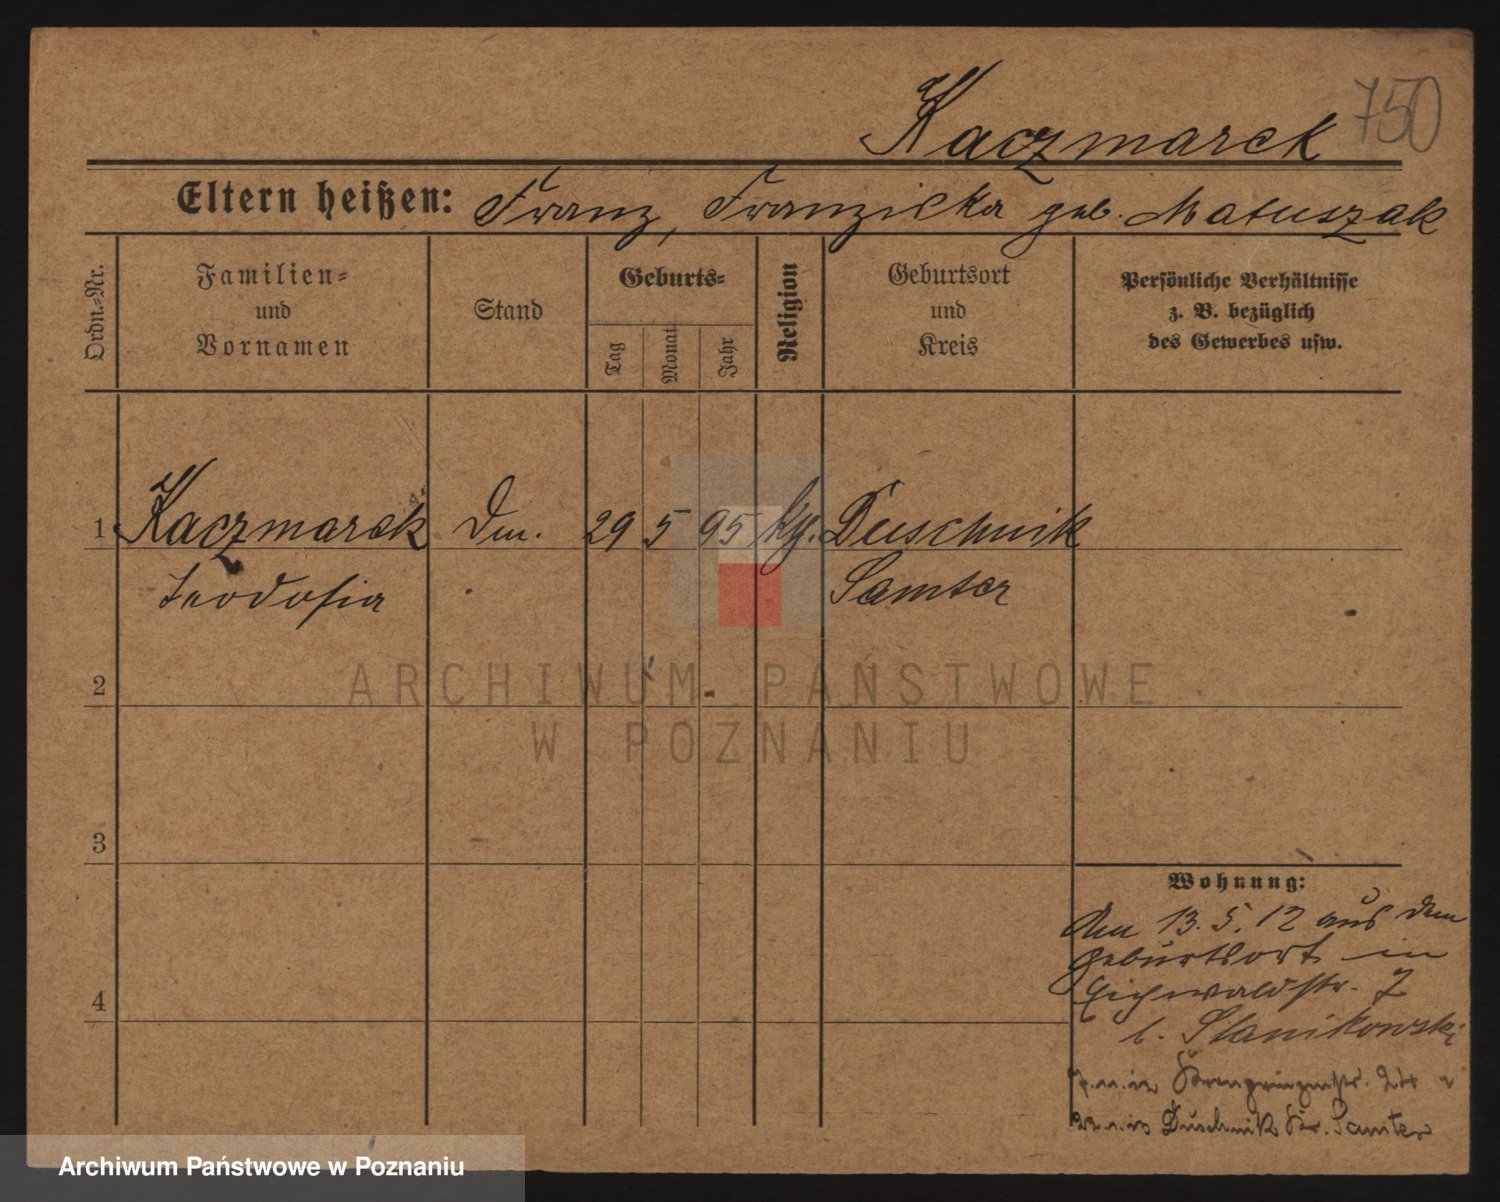 Kaczmarek 750
Eltern heißen: Franz, Franziska geb. Matuszak
Ordn.-Nr.
Familien-
und
Vornamen
Stand
Geburts-
Tag
Monat
Jahr
Religion
Geburtsort
und
Kreis
Persönliche Verhältnisse
z. B. bezüglich
des Gewerbes usw.
1 Kaczmarek 29 5 95 Duschnik
Teodosia Samter
2
3
4
ARCHIWUM PAŃSTWOWE
W POZNANIU
Wohnung:
Am 13.5.12 aus dem
Geburtsort in
Eichwaldstr. 7
b. Stanikowski
7.11.12 Kronprinzenstr.
Duschnik Kr. Samter
Archiwum Państwowe w Poznaniu